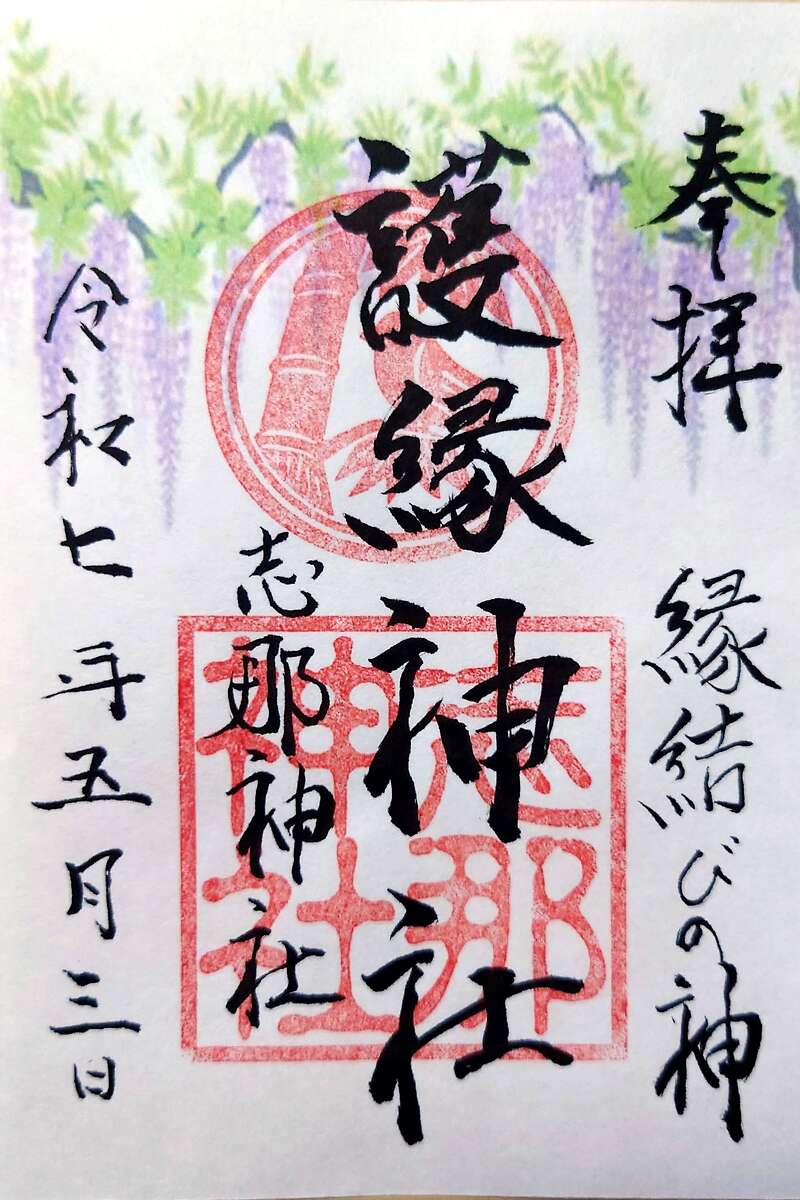 奉拝
縁結びの神
護縁神社
志那神社
志那神社
令和七年五月三日